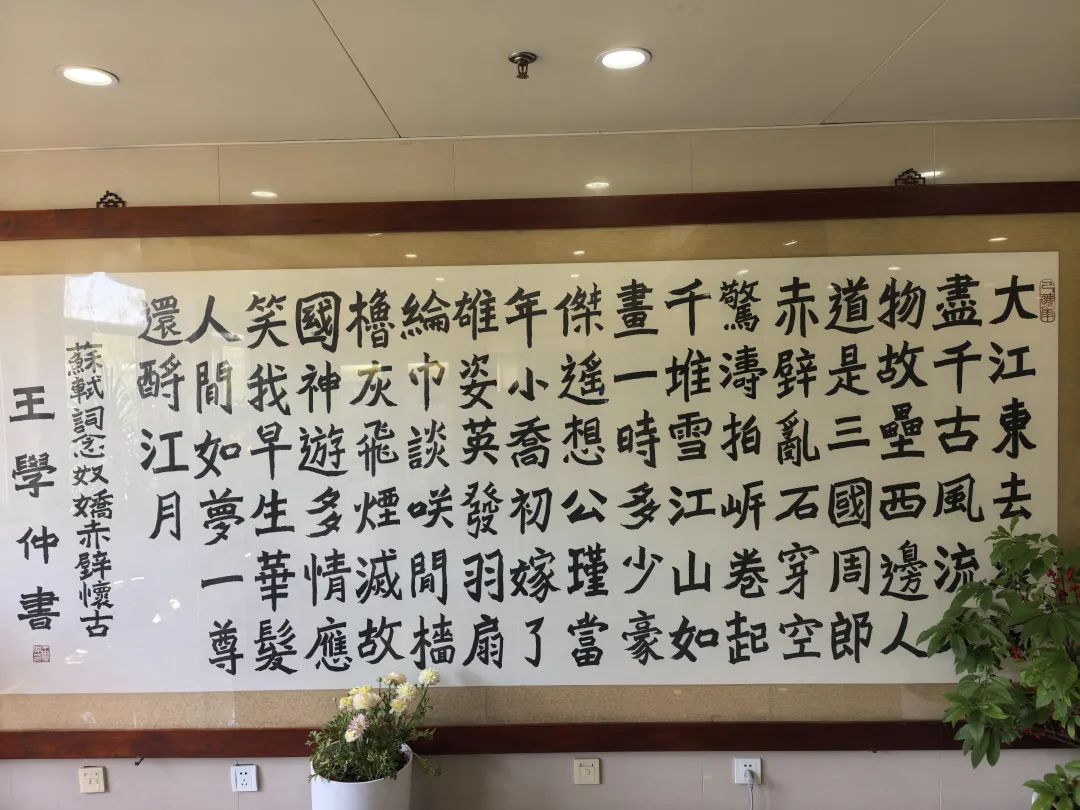 大江東去
盡千古風流
物故壘西邊人
道是三國周郎
赤壁亂石穿空
驚濤拍岸卷起
千堆雪江山如
畫一時多少豪
傑遙想公瑾當
年小喬初嫁了
雄姿英發羽扇
綸巾談咲間檣
櫓灰飛煙滅故
國神遊多情應
笑我早生華髮
人間如夢一尊
還酹江月
蘇軾詞念奴嬌赤壁懷古
王學仲書